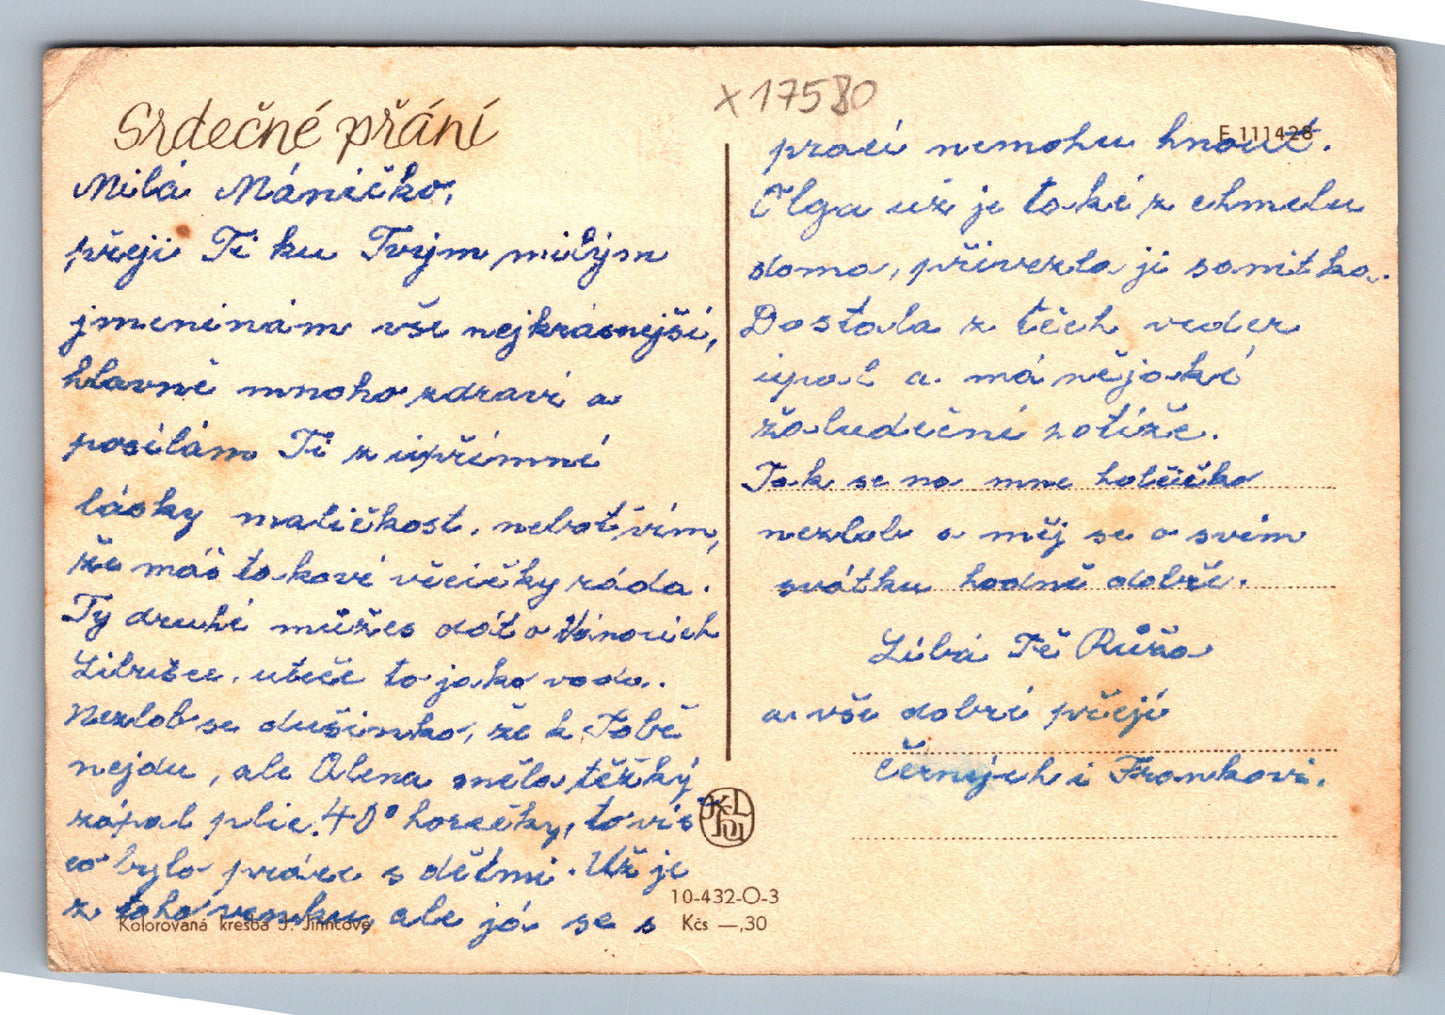 Srdečné přání
x 17580
E 111428
Milá Máničko,
přeji Ti ku Tvým milým
jmeninám vše nejkrásnější,
hlavně mnoho zdraví a
posílám Ti z upřímné
lásky maličkost, neboť vím,
že máš takové věcičky ráda.
Ty druhé můžeš dát o Vánocích
Libušce, uteče to jako voda.
Nezlob se dušinko, že k Tobě
nejdu, ale Alena měla těžký
zápal plic. 40° horečky, to víš
co bylo práce s dětmi. Už je
z toho venku, ale já se s
prací nemohu hnout.
Olga už je také z chmelu
doma, přivezla ji sanitka.
Dostala z těch veder
úpal a má nějaké
žaludeční potíže.
Tak se na mne holčičko
nezlob a měj se o svém
svátku hodně dobře.
Líbá Tě Růža
a vše dobré přejí
Černých i Frankovi.
10-432-O-3
Kčs —,30
Kolorovaná kresba J. Jinntové